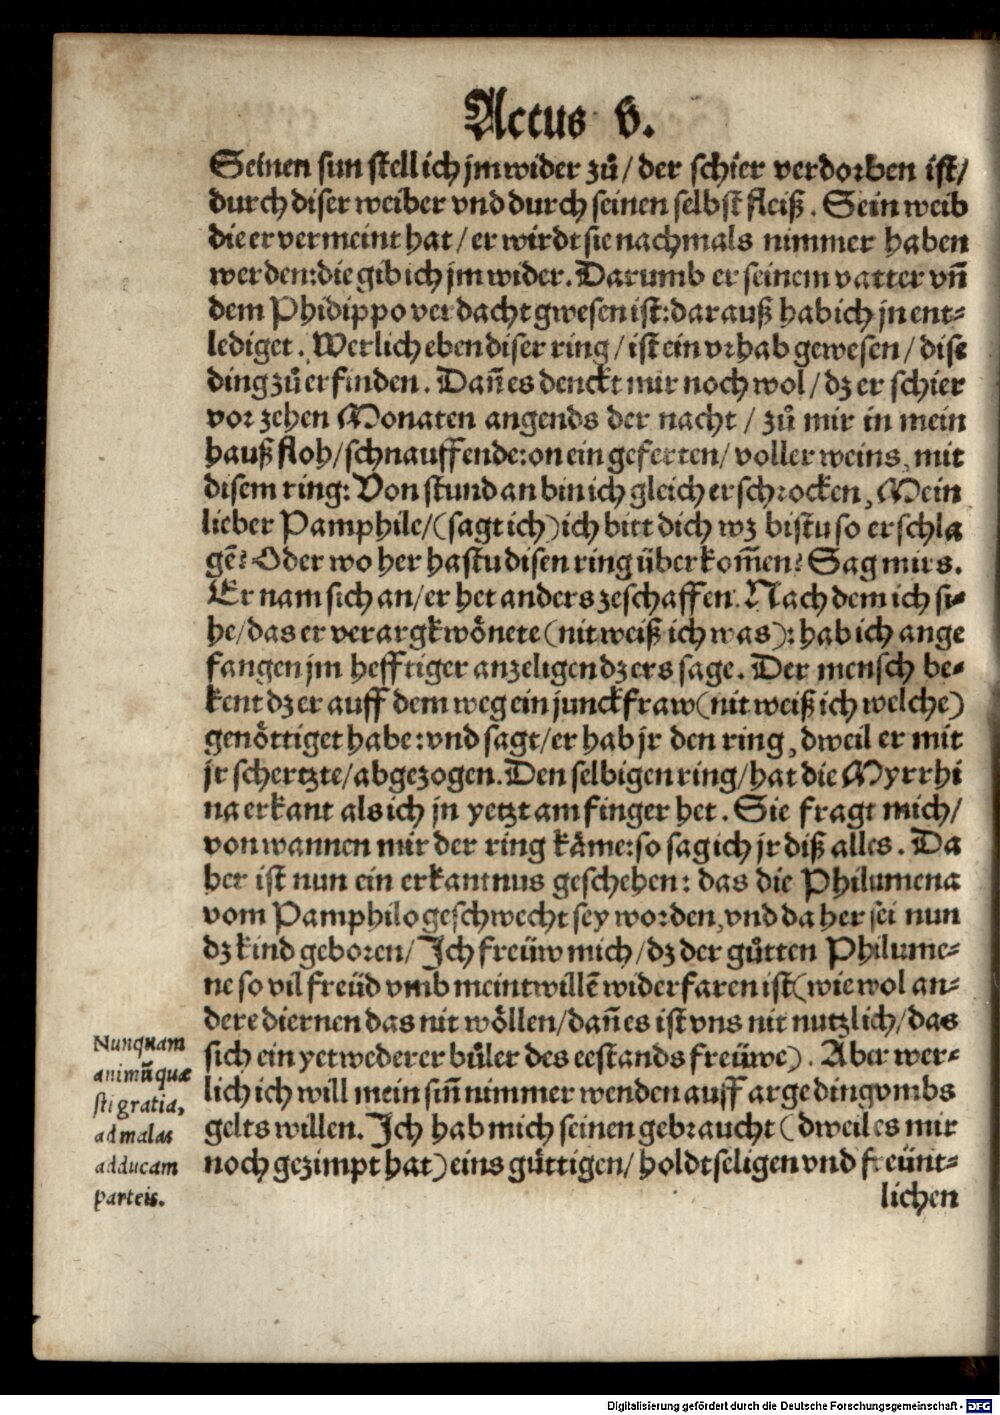 Actus v.
Seinen sun stell ich jm wider zů / der schier verdorben ist /
durch diser weiber vnd durch seinen selbst fleiß. Sein weib
die er vermeint hat / er wirdt sie nachmals nimmer haben
werden: die gib ich jm wider. Darumb er seinem vatter vñ
dem Phidippo verdacht gwesen ist: darauß hab ich jn ent⸗
lediget. Werlich eben diser ring / ist ein vrhab gewesen / dise
ding zů erfinden. Dañ es denckt mir noch wol / dz er schier
vor zehen Monaten angends der nacht / zů mir in mein
hauß floh / schnauffende: on ein geferten / voller weins, mit
disem ring: Von stund an bin ich gleich erschrocken, Mein
lieber Pamphile / (sagt ich) ich bitt dich wz bistu so erschla
gẽ? Oder wo her hastu disen ring überkom̃en? Sag mirs.
Er nam sich an / er het anders zeschaffen. Nach dem ich si⸗
he / das er verargkwönete (nit weiß ich was): hab ich ange
fangen jm hefftiger anzeligen dz ers sage. Der mensch be⸗
kent dz er auff dem weg ein junckfraw (nit weiß ich welche)
genöttiget habe: vnd sagt / er hab jr den ring, dweil er mit
jr schertzte / abgezogen. Den selbigen ring / hat die Myrrhi
na erkant als ich jn yetzt am finger het. Sie fragt mich /
von wannen mir der ring käme: so sag ich jr diß alles. Da
her ist nun ein erkantnus geschehen: das die Philumena
vom Pamphilo geschwecht sey worden, vnd da her sei nun
dz kind geboren / Ich freüw mich / dz der gůtten Philume⸗
ne so vil freüd vmb meintwillẽ widerfaren ist (wie wol an⸗
dere diernen das nit wöllen / dañ es ist vns nit nutzlich / das
sich ein yetwederer bůler des eestands freüwe). Aber wer⸗
lich ich will mein siñ nimmer wenden auff arge ding vmbs
gelts willen. Ich hab mich seinen gebraucht (dweil es mir
noch gezimpt hat) eins güttigen / holdtseligen vnd freünt⸗
lichen
Nunquam
animũ quæ
sti gratia,
ad malas
adducam
parteis.
Digitalisierung gefördert durch die Deutsche Forschungsgemeinschaft - DFG